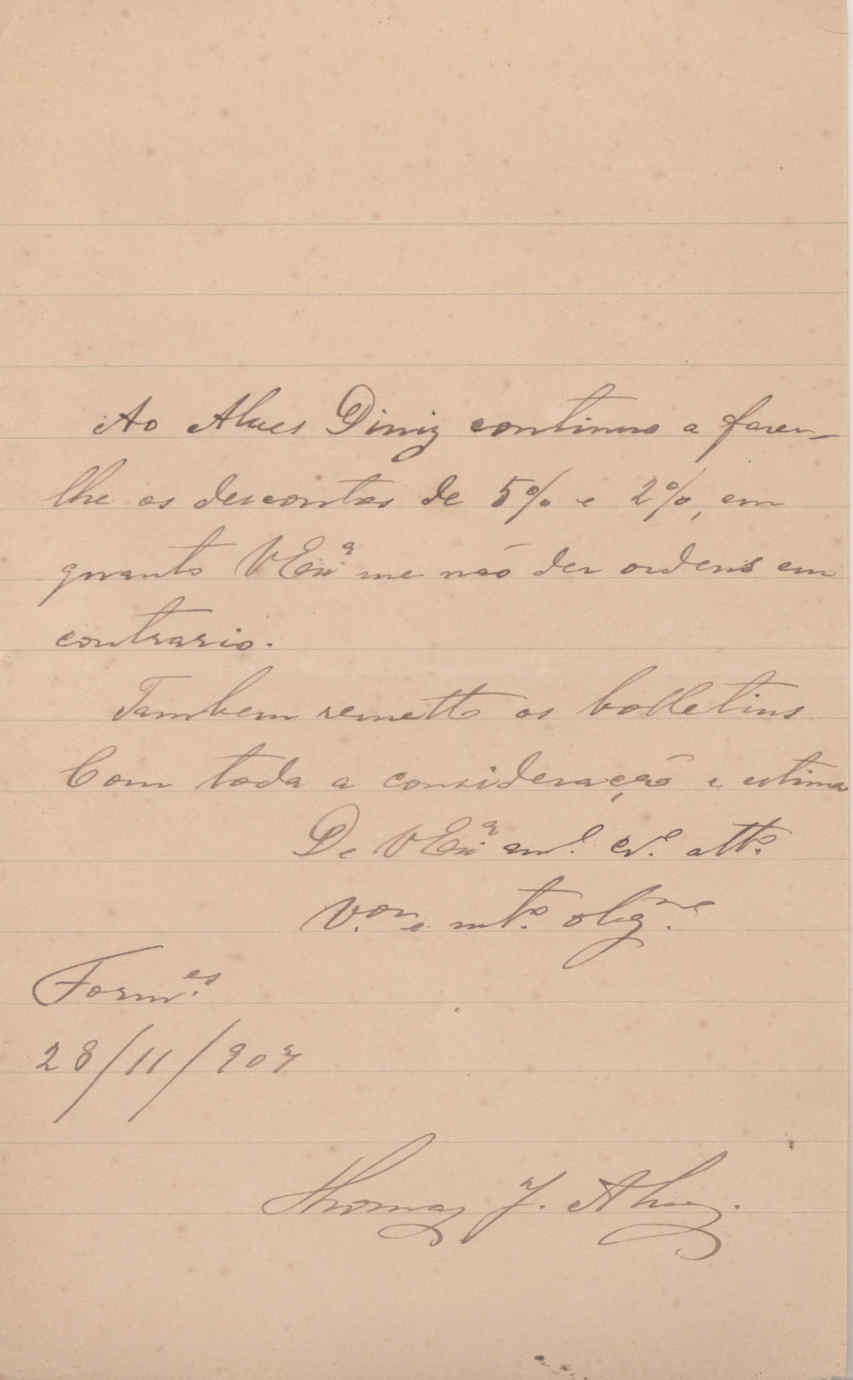 Ao Alves Diniz continuo a fazer-
lhe os descontos de 5% e 2%, em
quanto V Exª me não der ordens em
contrario.
Tambem remetto os bolletins
Com toda a consideração e estima
De V Exª am.º cr.º att.º
V.or e mt.º obg.
Form.es
28/11/907
Thomaz J. Alvez.